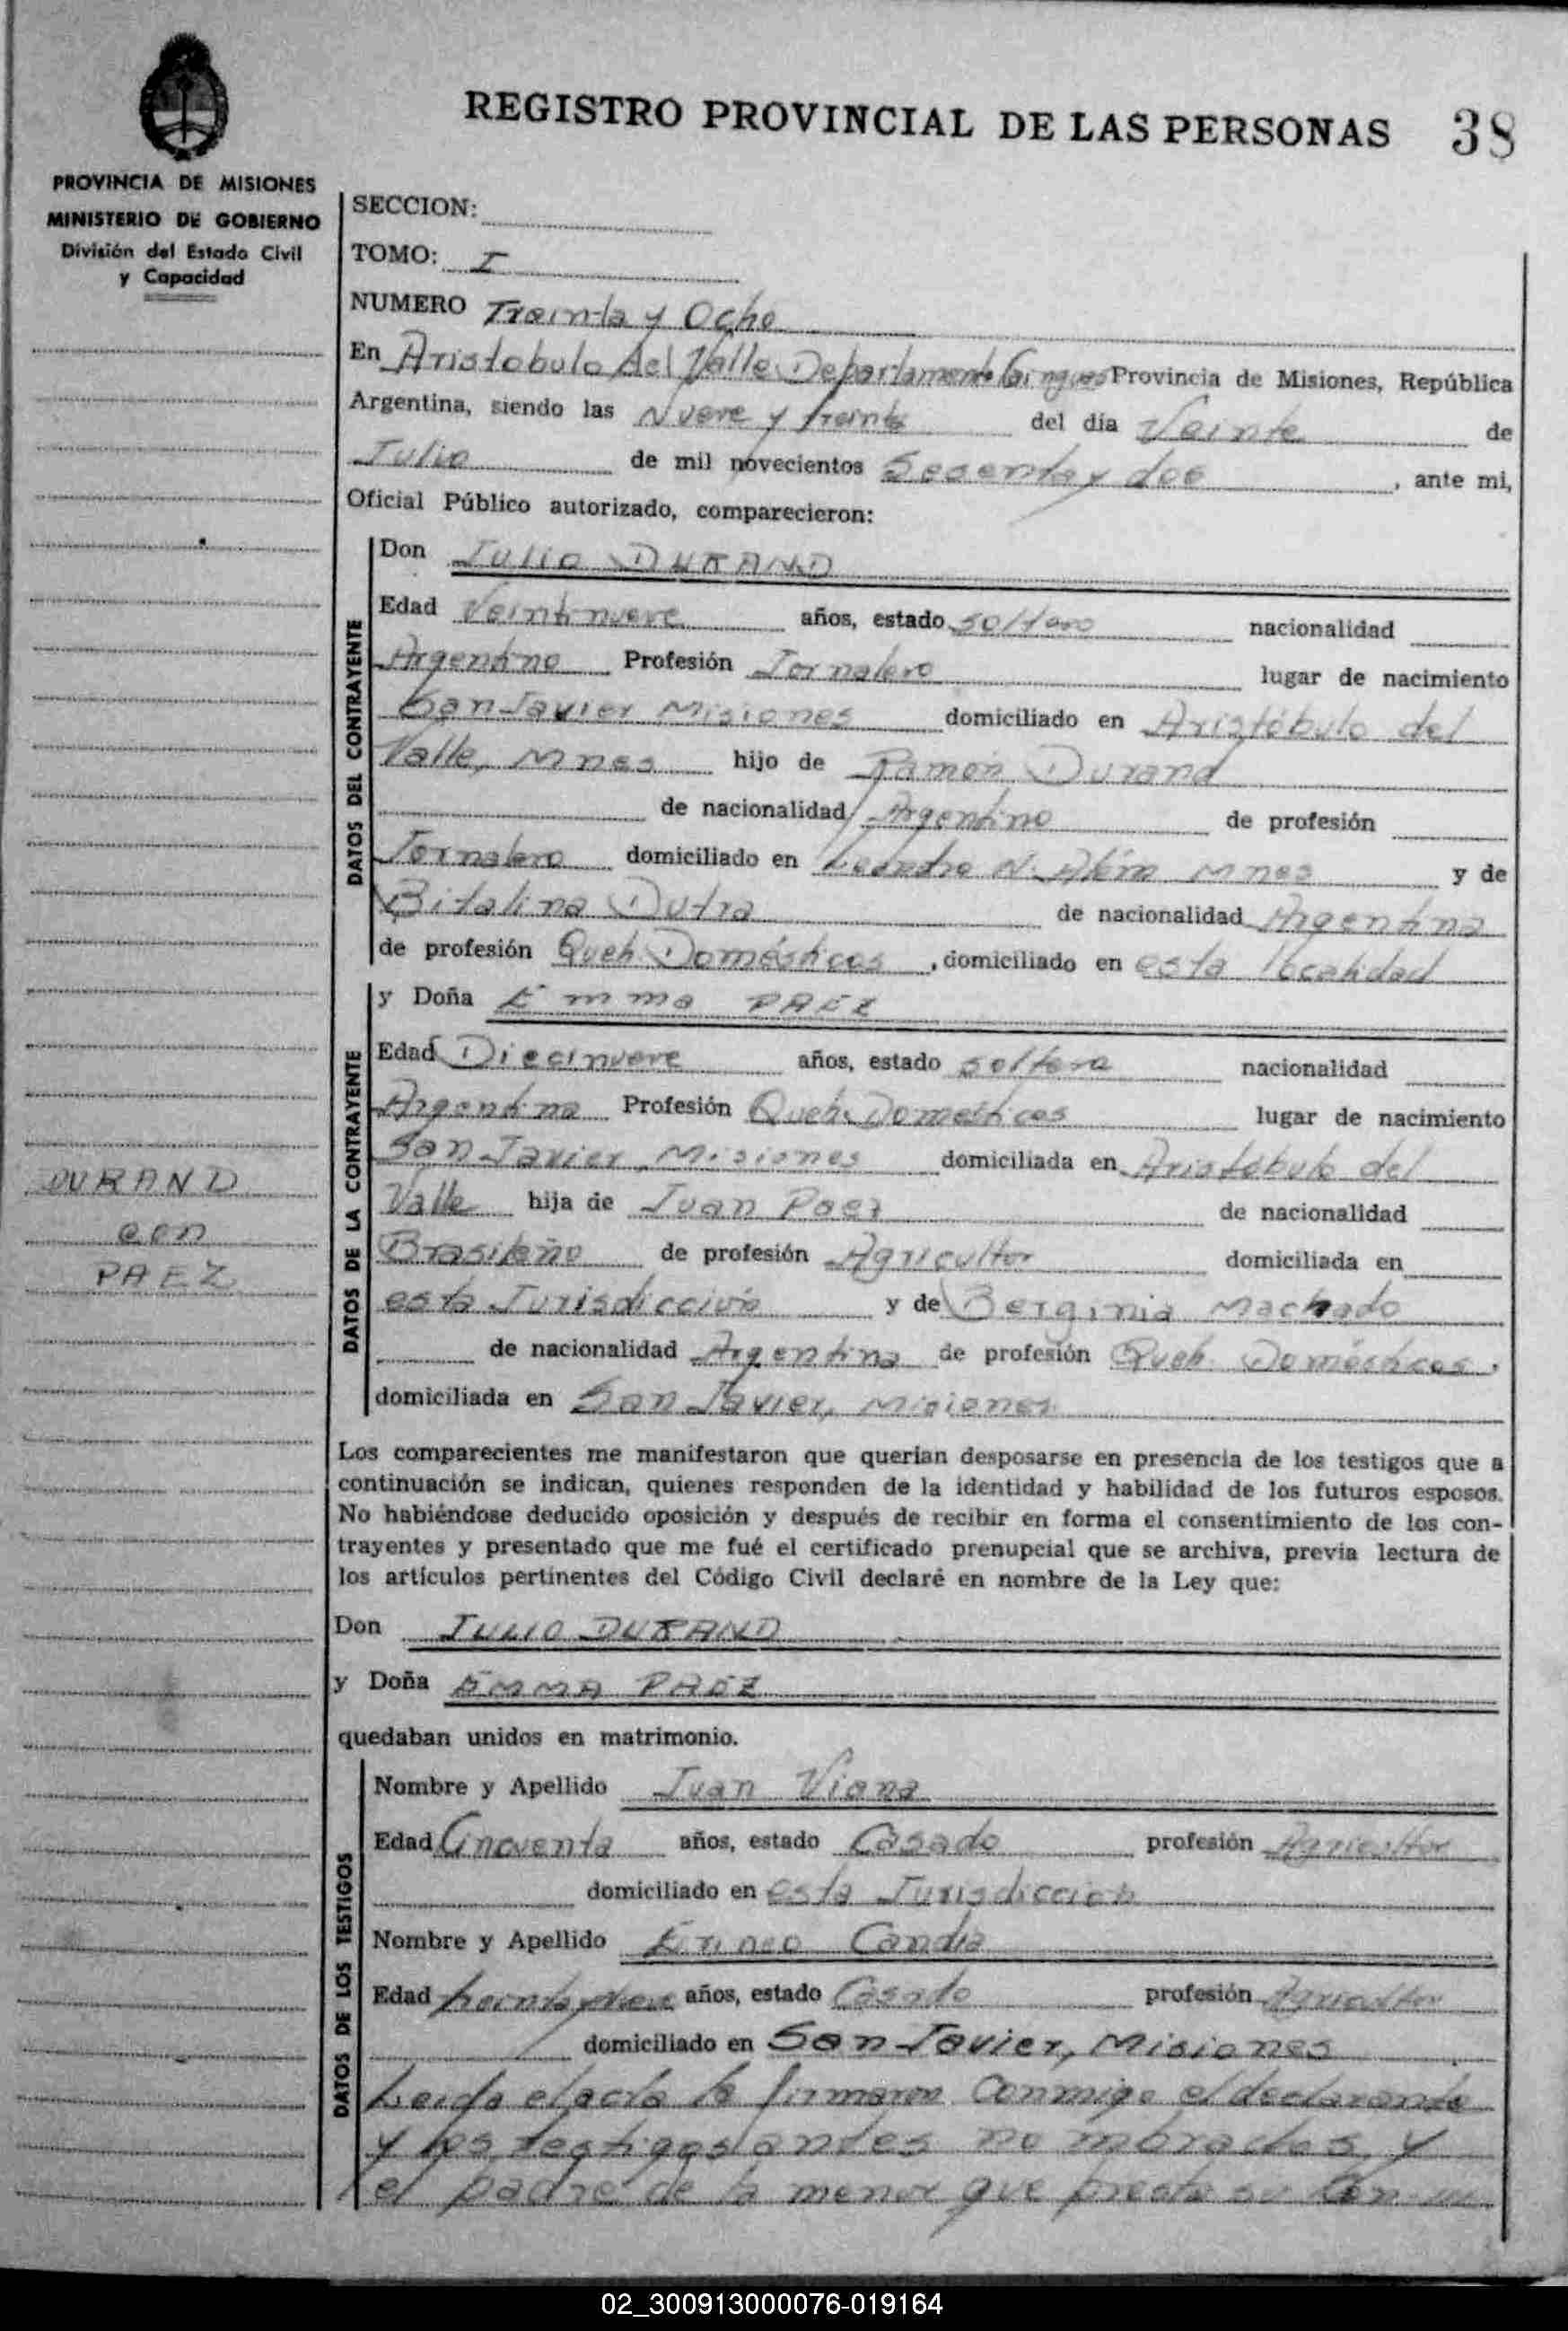 REGISTRO PROVINCIAL DE LAS PERSONAS 38
PROVINCIA DE MISIONES
MINISTERIO DE GOBIERNO
División del Estado Civil
y Capacidad
SECCION:
TOMO: I
NUMERO Treinta y Ocho
En Aristobulo del Valle Departamento Cainguas Provincia de Misiones, República
Argentina, siendo las Nueve y treinta del día Veinte de
Julio de mil novecientos Sesenta y dos, ante mi,
Oficial Público autorizado, comparecieron:
DATOS DEL CONTRAYENTE
Don Julio DURAND
Edad Veintinueve años, estado soltero nacionalidad
Argentino Profesión Jornalero lugar de nacimiento
San Javier Misiones domiciliado en Aristóbulo del
Valle, Mnes hijo de Ramón Durand
de nacionalidad Argentino de profesión
Jornalero domiciliado en Leandro N. Alem Mnes y de
Bitalina Dutra de nacionalidad Argentina
de profesión Queh. Domésticos, domiciliado en esta localidad
DATOS DE LA CONTRAYENTE
y Doña Emma PAEZ
Edad Diecinueve años, estado soltera nacionalidad
Argentina Profesión Queh. Domesticos lugar de nacimiento
San Javier, Misiones domiciliada en Aristobulo del
Valle hija de Juan Paez de nacionalidad
Brasileño de profesión Agricultor domiciliada en
esta Jurisdicción y de Berginia Machado
de nacionalidad Argentina de profesión Queh. Domésticos,
domiciliada en San Javier, Misiones
DURAND
con
PAEZ
Los comparecientes me manifestaron que querían desposarse en presencia de los testigos que a
continuación se indican, quienes responden de la identidad y habilidad de los futuros esposos.
No habiéndose deducido oposición y después de recibir en forma el consentimiento de los con-
trayentes y presentado que me fué el certificado prenupcial que se archiva, previa lectura de
los artículos pertinentes del Código Civil declaré en nombre de la Ley que:
Don JULIO DURAND
y Doña EMMA PAEZ
quedaban unidos en matrimonio.
DATOS DE LOS TESTIGOS
Nombre y Apellido Juan Viana
Edad Cincuenta años, estado Casado profesión Agricultor
domiciliado en esta Jurisdicción
Nombre y Apellido Erineo Candia
Edad treinta y años, estado Casado profesión Agricultor
domiciliado en San Javier, Misiones
Leida el acta la firmaron Conmigo el declarante
y los testigos antes nombrados y
el padre de la menor que presta su
02_300913000076-019164